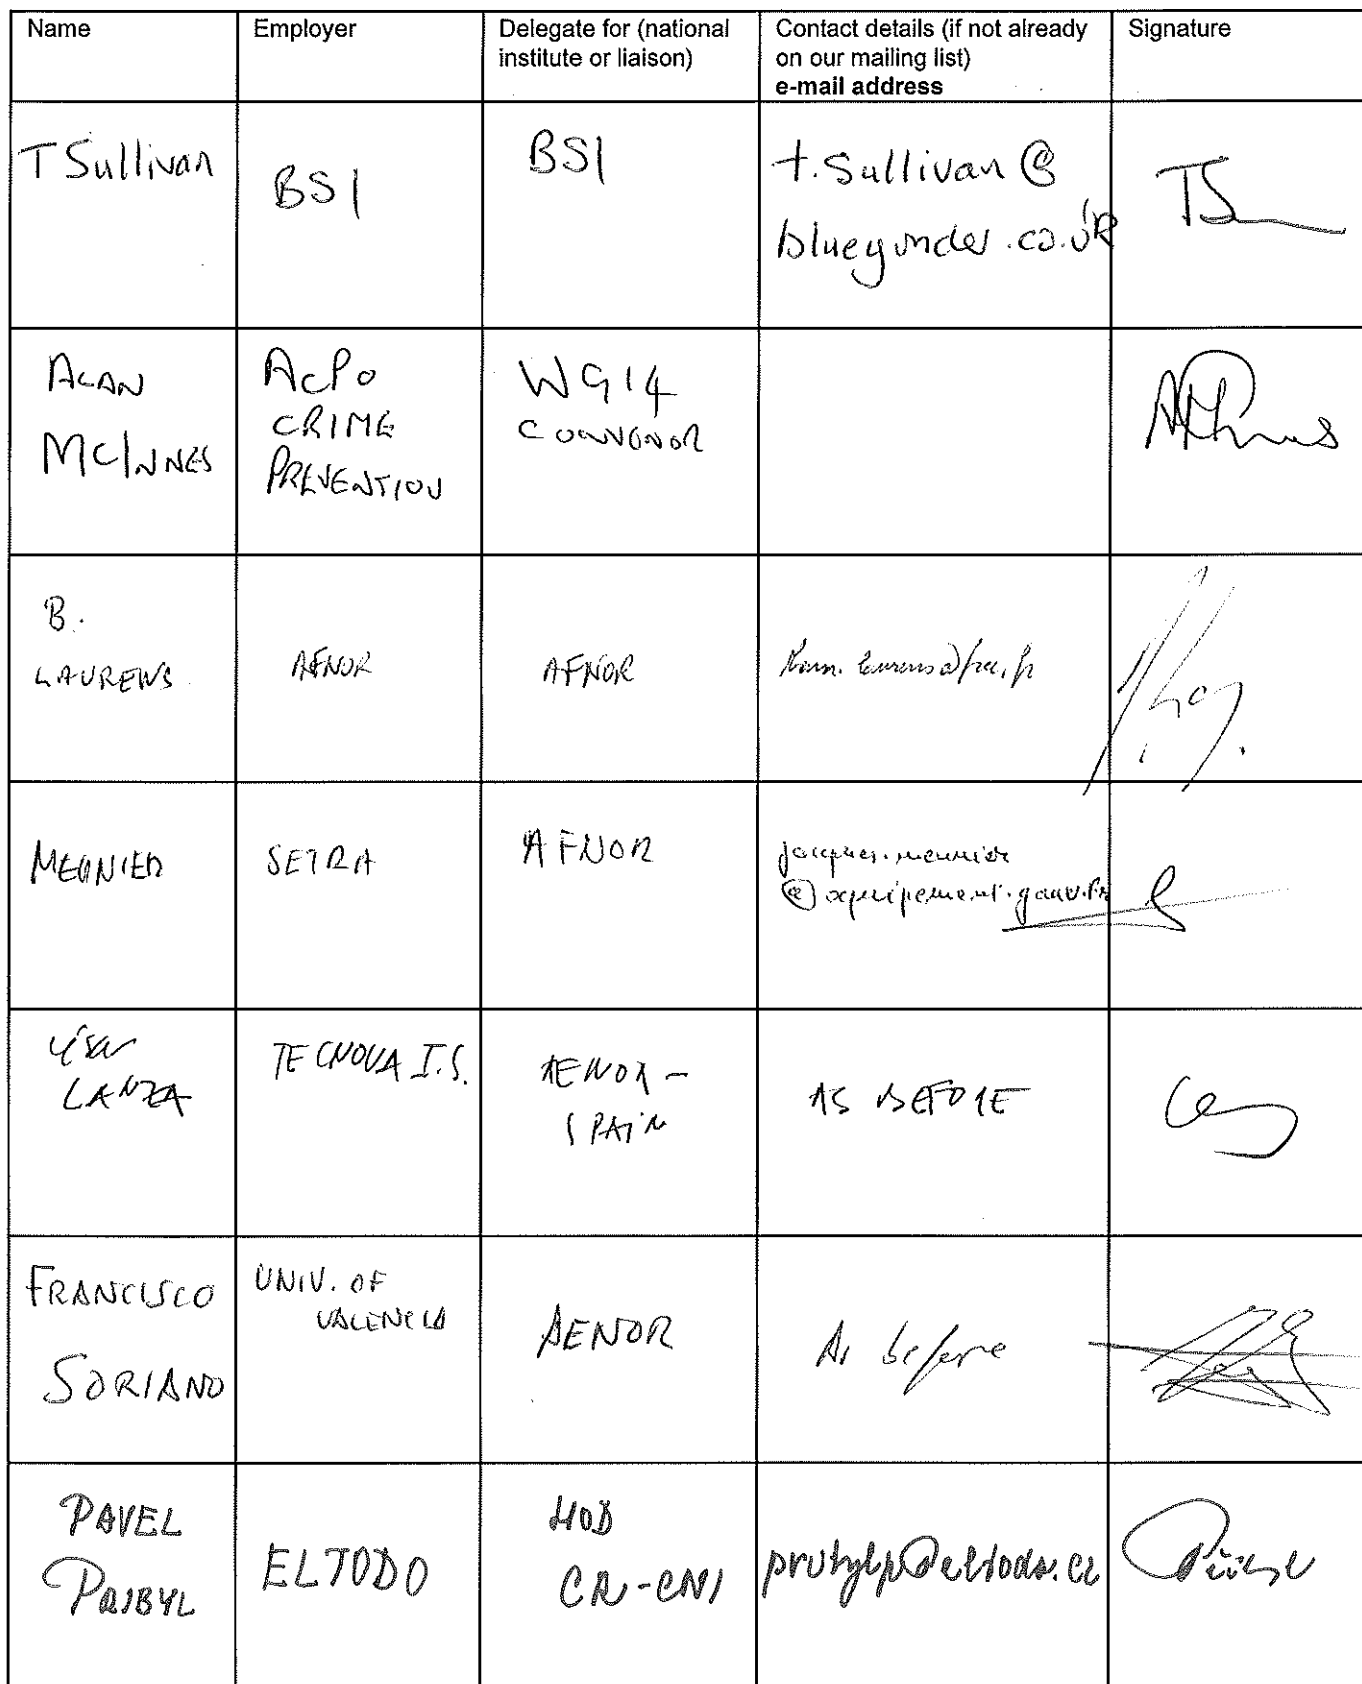 Name
Employer
Delegate for (national
institute or liaison)
Contact details (if not already
on our mailing list)
e-mail address
Signature
T Sullivan
BSI
BSI
t.sullivan@
.co.uk
TS
ALAN
MCINNES
ACPO
CRIME
PREVENTION
WG14
CONVONOR
B.
LAURENS
AFNOR
AFNOR
MEUNIER
SETRA
AFNOR
jacques.meunier
@equipement.gouv.fr
LANZA
TECNOVA I.S.
AENOR -
SPAIN
AS BEFORE
FRANCISCO
SORIANO
UNIV. OF
VALENCIA
AENOR
As before
PAVEL
PRIBYL
ELTODO
CR-CNI